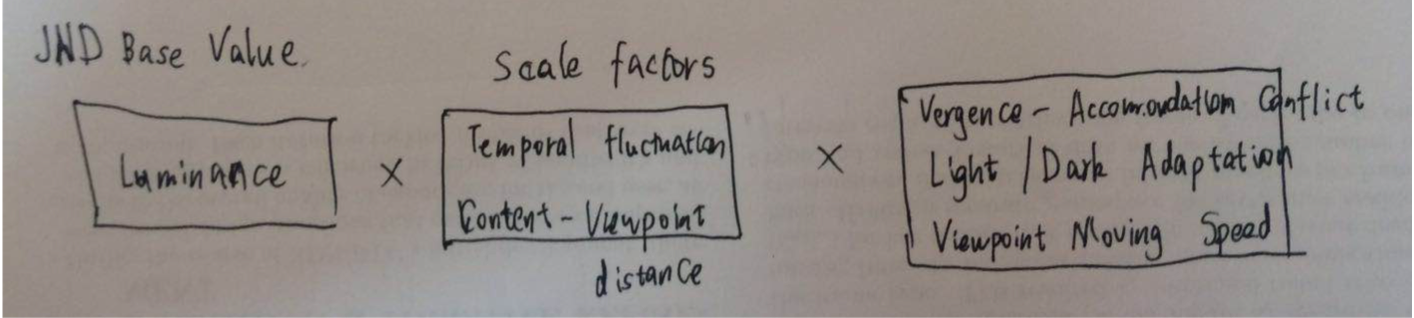 JND Base Value.
Scale factors
Luminance
×
Temporal fluctuation
Content - Viewpoint
distance
×
Vergence - Accommodation Conflict
Light / Dark Adaptation
Viewpoint Moving Speed